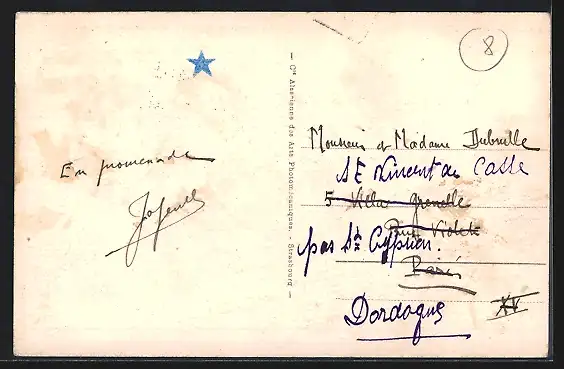 8
En promenade
— Cie Alsacienne des Arts Photomécaniques. - Strasbourg —
Monsieur et Madame
St Vincent de Cosse
5 Villa Grenelle
Rue Violet
par St Cyprien.
Paris XV
Dordogne